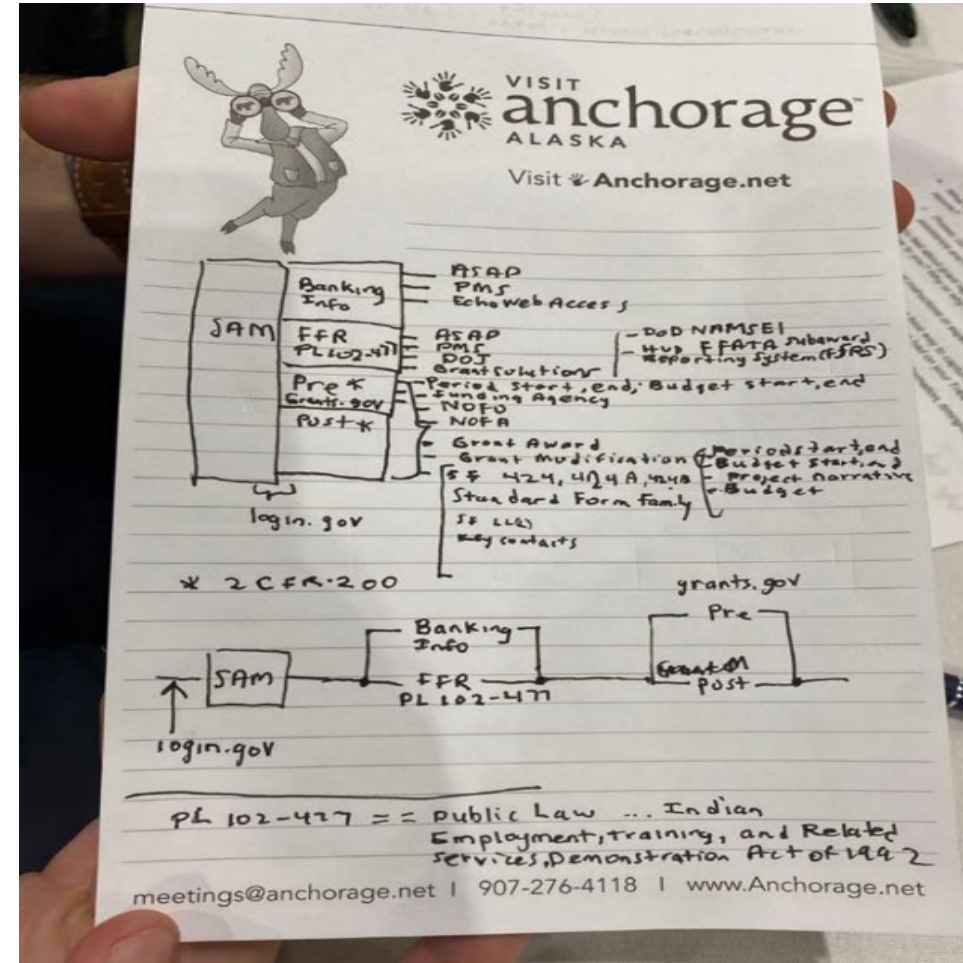 VISIT
anchorage
ALASKA
Visit Anchorage.net
SAM
Banking
Info
ASAP
PMS
EchoWeb Access
FFR
PL 102-477
ASAP
PMS
DOJ
GrantSolutions
- DoD NAMSEI
- HUD FFATA subaward
Reporting System (FSRS)
Pre *
Grants.gov
Post *
- Period start, end; Budget start, end
- Funding Agency
- NOFO
- NOFA
- Grant Award
- Grant modification
- Period start, end
- Budget start, end
- Project narrative
- Budget
SF 424, 424A, 424B
Standard Form Family
SF
Key contacts
login.gov
* 2 CFR.200
grants.gov
Banking
Info
Pre
SAM
FFR
PL 102-477
Post
login.gov
PL 102-477 == Public Law ... Indian
Employment, training, and Related
services, Demonstration Act of 1992
meetings@anchorage.net | 907-276-4118 | www.Anchorage.net